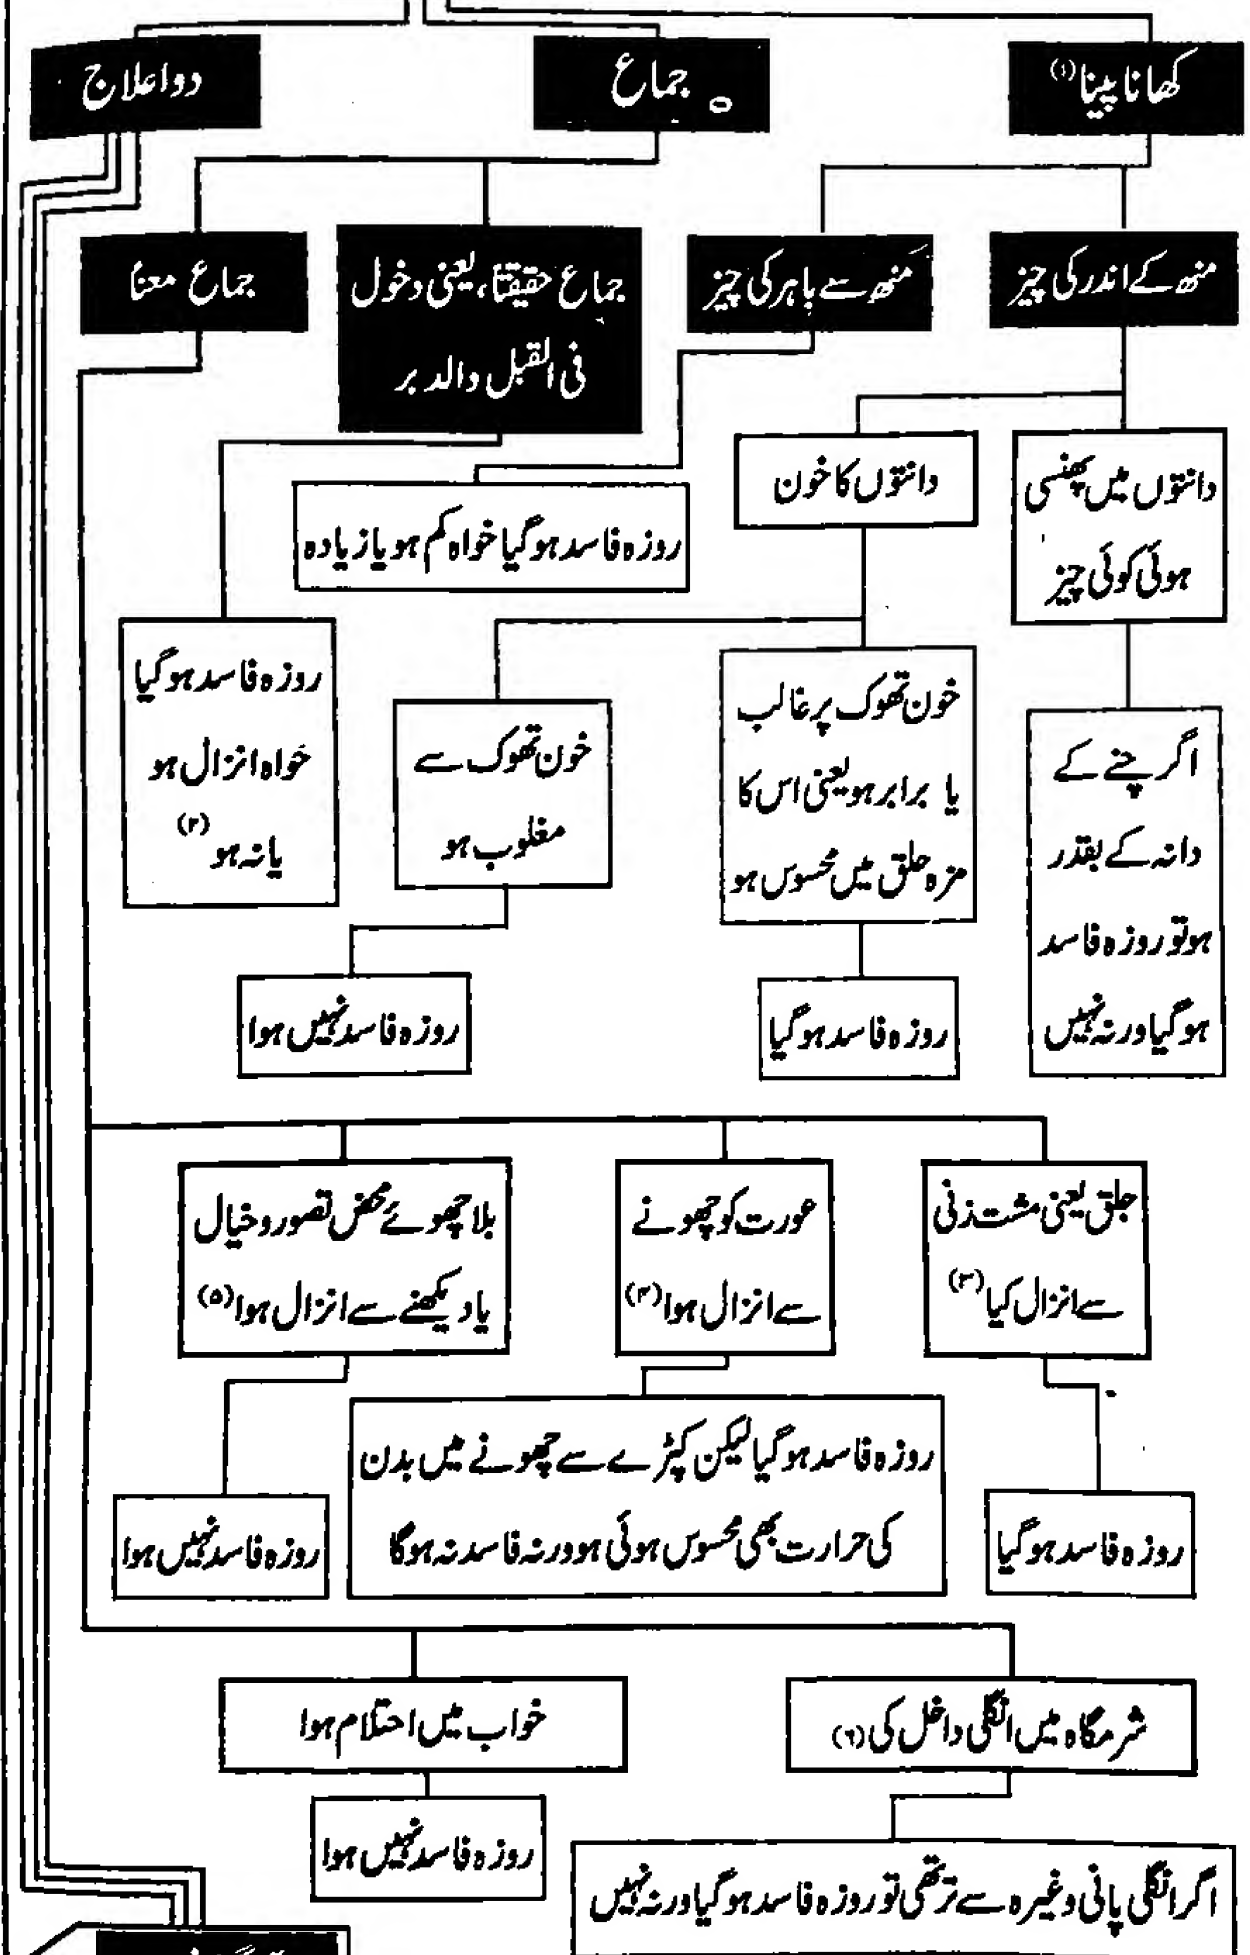 کھانا پینا (۱)
جماع
دوا علاج
منھ کے اندر کی چیز
منھ سے باہر کی چیز
جماع حقیقتاً، یعنی دخول
فی القبل والدبر
جماع معناً
دانتوں میں پھنسی
ہوئی کوئی چیز
دانتوں کا خون
روزہ فاسد ہوگیا خواہ کم ہو یا زیادہ
اگر چنے کے
دانہ کے بقدر
ہو تو روزہ فاسد
ہوگیا ورنہ نہیں
خون تھوک پر غالب
یا برابر ہو یعنی اس کا
مزہ حلق میں محسوس ہو
خون تھوک سے
مغلوب ہو
روزہ فاسد ہوگیا
خواہ انزال ہو
یا نہ ہو (۲)
روزہ فاسد ہوگیا
روزہ فاسد نہیں ہوا
جلق یعنی مشت زنی
سے انزال کیا (۳)
عورت کو چھونے
سے انزال ہوا (۴)
بلا چھوئے محض تصور و خیال
یا دیکھنے سے انزال ہوا (۵)
روزہ فاسد ہوگیا
روزہ فاسد ہوگیا لیکن کپڑے سے چھونے میں بدن
کی حرارت بھی محسوس ہوئی ہو ورنہ فاسد نہ ہوگا
روزہ فاسد نہیں ہوا
شرمگاہ میں انگلی داخل کی (۶)
خواب میں احتلام ہوا
اگر انگلی پانی وغیرہ سے تر تھی تو روزہ فاسد ہوگیا ورنہ نہیں
روزہ فاسد نہیں ہوا